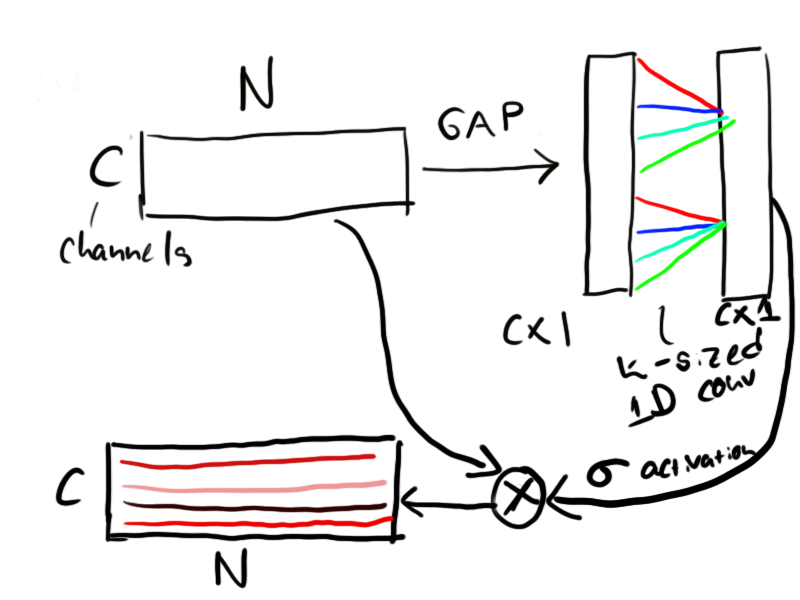 N
GAP
C
channels
C x 1
C x 1
k-sized
1D conv
σ activation
X
C
N